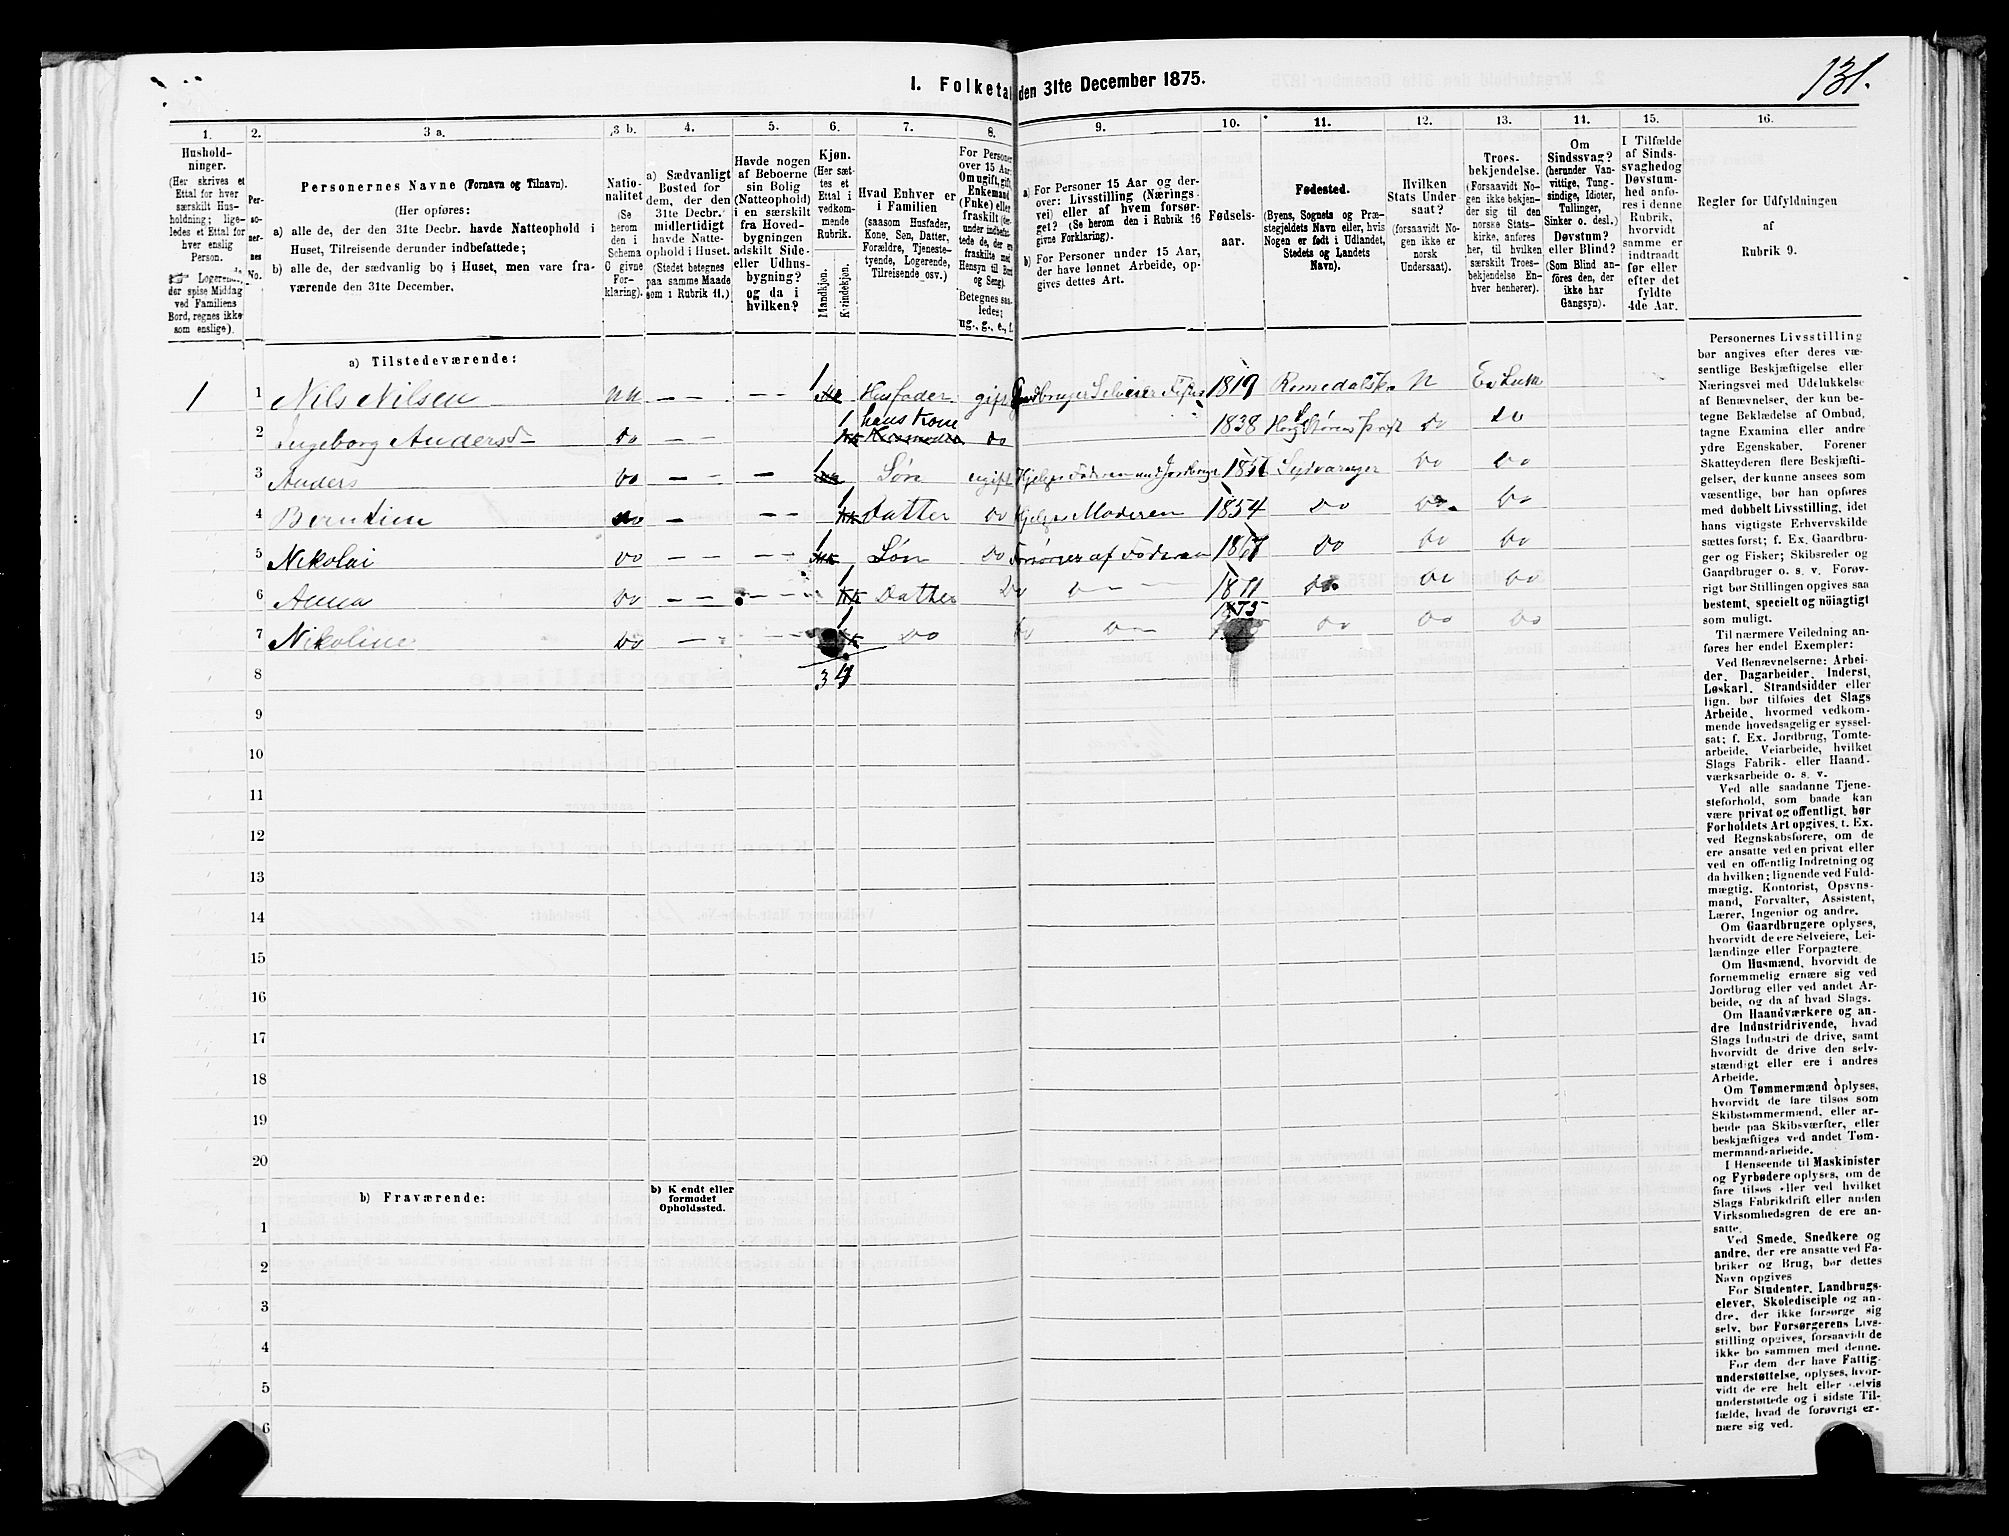 131.
I. Folketal den 31te December 1875.
1. 2. 3 a. 3 b. 4. 5. 6. 7. 8. 9. 10. 11. 12. 13. 14. 15. 16.
Hushold-
ninger.
(Her skrives et
Ettal for hver
særskilt Hus-
holdning; lige-
ledes et Ettal for
hver enslig
Person.
☞ Logerende,
der spise Middag
ved Familiens
Bord, regnes ikke
som enslige).
Per-
so-
ner-
nes
No.
Personernes Navne (Fornavn og Tilnavn).
(Her opføres:
a) alle de, der den 31te Decbr. havde Natteophold i
Huset, Tilreisende derunder indbefattede;
b) alle de, der sædvanlig bo i Huset, men vare fra-
værende den 31te December.
Natio-
nalitet
(Se
herom
den i
Schema
C givne
For-
klaring).
a) Sædvanligt
Bosted for
dem, der den
31te Decbr.
midlertidigt
havde Natte-
ophold i Huset.
(Stedet betegnes
paa samme Maade
som i Rubrik 11.)
Havde nogen
af Beboerne
sin Bolig
(Natteophold)
i en særskilt
fra Hoved-
bygningen
adskilt Side-
eller Udhus-
bygning?
og da i
hvilken?
Kjøn.
(Her sæt-
tes et
Ettal i
vedkom-
mende
Rubrik.
Mandkjøn.
Kvindekjøn.
Hvad Enhver er
i Familien
(saasom Husfader,
Kone, Søn, Datter,
Forældre, Tjeneste-
tyende, Logerende,
Tilreisende osv.)
For Personer
over 15 Aar:
Om ugift, gift,
Enkemand
(Enke) eller
fraskilt
Betegnes saa-
ledes:
ug., g., e., f.
a) For Personer 15 Aar og der-
over: Livsstilling (Nærings-
vei) eller af hvem forsør-
get? (Se herom den i Rubrik 16
givne Forklaring).
b) For Personer under 15 Aar,
der have lønnet Arbeide, op-
gives dettes Art.
Fødsels-
aar.
Fødested.
(Byens, Sognets og Præ-
stegjeldets Navn eller, hvis
Nogen er født i Udlandet,
Stedets og Landets
Navn).
Hvilken
Stats Under-
saat?
(forsaavidt No-
gen ikke er
norsk
Undersaat).
Troes-
bekjendelse.
(Forsaavidt No-
gen ikke bekjen-
der sig til den
norske Stats-
kirke, anføres
her, til hvilken
særskilt Troes-
bekjendelse En-
hver henhører).
Om
Sindssvag?
(herunder Van-
vittige, Tung-
sindige, Idioter,
Tullinger,
Sinker o. desl.)
Døvstum?
eller Blind?
(Som Blind an-
føres den, der
ikke har
Gangsyn).
I Tilfælde
af Sinds-
svaghed og
Døvstum-
hed anfø-
res i denne
Rubrik,
hvorvidt
samme er
indtraadt
før eller
efter det
fyldte
4de Aar.
Regler for Udfyldningen
af
Rubrik 9.
a) Tilstedeværende:
1 1 Nils Nilsen NN — — — — 1 Husfader gift Gaardbruger Selveier 1819 N Ev Luth
2 Ingeborg Do — — 1 hans Kone Do 1838 Do Do
3 Anders Do — — — 1 Søn ugift Sydvaranger Do Do
4 Do — — — 1 Datter Do Hjelper Moderen 1854 Do Do Do
5 Nikolai Do — — — — 1 Søn Do Forsørges af Faderen Do Do Do
6 Anna Do — — — — 1 Datter Do Do — — 1871 Do Do Do
7 Nikoline Do — — — — 1 Do Do Do — 1875 Do Do Do
8 3 4
9
10
11
12
13
14
15
16
17
18
19
20
b) Fraværende:
b) Kjendt eller
formodet
Opholdssted.
1
2
3
4
5
6
Personernes Livsstilling
bør angives efter deres væ-
sentlige Beskjæftigelse eller
Næringsvei med Udelukkelse
af Benævnelser, der kun be-
tegne Beklædelse af Ombud,
tagne Examina eller andre
ydre Egenskaber. Forener
Skatteyderen flere Beskjæfti-
gelser, der kunne ansees som
væsentlige, bør han opføres
med dobbelt Livsstilling, idet
hans vigtigste Erhvervskilde
sættes først; f. Ex. Gaardbru-
ger og Fisker; Skibsreder og
Gaardbruger o. s. v. Forøv-
rigt bør Stillingen opgives saa
bestemt, specielt og nöiagtigt
som muligt.
Til nærmere Veiledning an-
føres her endel Exempler:
Ved Benævnelserne: Arbei-
der, Dagarbeider, Inderst,
Løskarl, Strandsidder eller
lign. bør tilføies det Slags
Arbeide, hvormed vedkom-
mende hovedsagelig er syssel-
sat; f. Ex. Jordbrug, Tomte-
arbeide, Veiarbeide, hvilket
Slags Fabrik- eller Haand-
værksarbeide o. s. v.
Ved alle saadanne Tjene-
steforhold, som baade kan
være privat og offentligt, bør
Forholdets Art opgives, f. Ex.
ved Regnskabsførere, om de
ere ansatte ved en privat eller
ved en offentlig Indretning og
da hvilken; lignende ved Fuld-
mægtig, Kontorist, Opsyns-
mand, Forvalter, Assistent,
Lærer, Ingeniør og andre.
Om Gaardbrugere oplyses,
hvorvidt de ere Selveiere, Lei-
lændinge eller Forpagtere.
Om Husmænd, hvorvidt de
fornemmelig ernære sig ved
Jordbrug eller ved andet Ar-
beide, og da af hvad Slags.
Om Haandværkere og an-
dre Industridrivende, hvad
Slags Industri de drive, samt
hvorvidt de drive den selv-
stændigt eller ere i andres
Arbeide.
Om Tømmermænd oplyses,
hvorvidt de fare tilsøs som
Skibstømmermænd, eller ar-
beide paa Skibsværfter, eller
beskjæftiges ved andet Tøm-
mermandsarbeide.
I Henseende til Maskinister
og Fyrbødere oplyses, om de
fare tilsøs eller ved hvilket
Slags Fabrikdrift eller anden
Virksomhedsgren de ere an-
satte.
Ved Smede, Snedkere og
andre, der ere ansatte ved Fa-
briker og Brug, bør dettes
Navn opgives
For Studenter, Landbrugs-
elever, Skoledisciple og an-
dre, der ikke forsørge sig
selv, bør Forsørgerens Livs-
stilling opgives, forsaavidt de
ikke bo sammen med denne.
For dem der have Fattig-
understøttelse, oplyses, hvor-
vidt de ere helt eller delvis
understøttede og i sidste Til-
fælde, hvad de forøvrigt er-
nære sig ved.